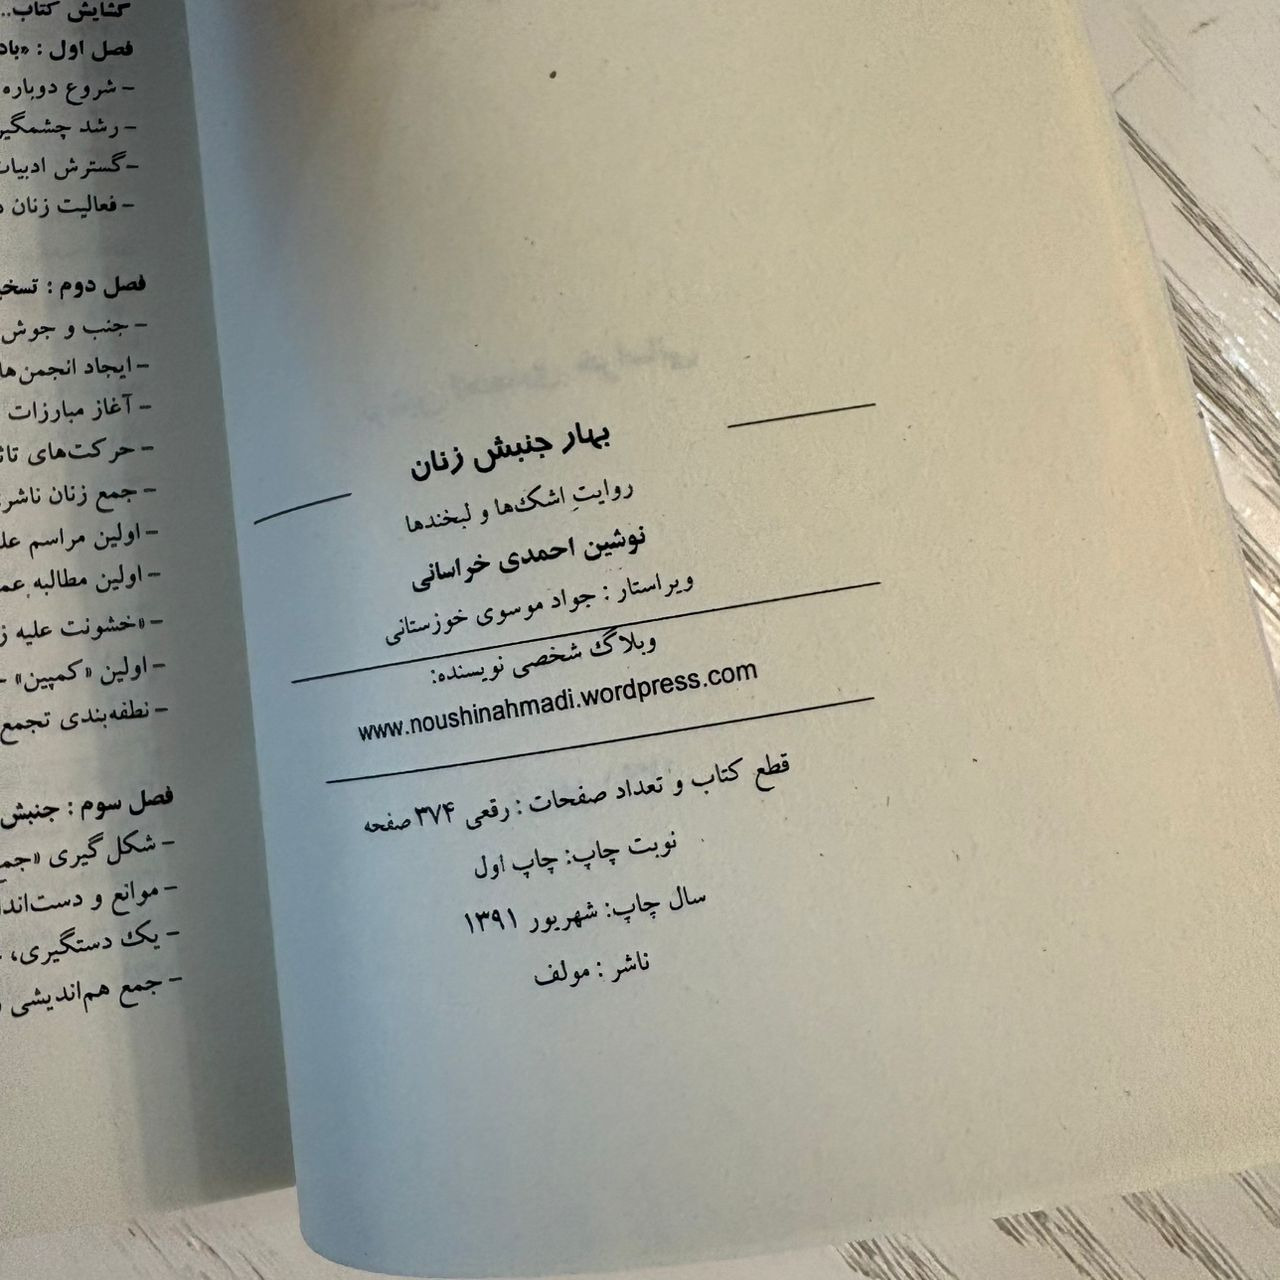 بهار جنبش زنان
روایتِ اشک‌ها و لبخندها
نوشین احمدی خراسانی
ویراستار : جواد موسوی خوزستانی
وبلاگ شخصی نویسنده:
www.noushinahmadi.wordpress.com
قطع کتاب و تعداد صفحات : رقعی ۳۷۴ صفحه
نوبت چاپ: چاپ اول
سال چاپ: شهریور ۱۳۹۱
ناشر : مولف
گشایش کتاب..
فصل اول : «باد
– شروع دوباره
– رشد چشمگیر
– گسترش ادبیات
– فعالیت زنان
فصل دوم :
– جنب و جوش
– ایجاد انجمن‌ها
– آغاز مبارزات
– حرکت‌های
– جمع زنان ناشر
– اولین مراسم
– اولین مطالبه
– «خشونت علیه
– اولین «کمپین»
– نطفه‌بندی تجمع
فصل سوم : جنبش
– شکل گیری
– موانع و
– یک دستگیری،
– جمع هم‌اندیشی